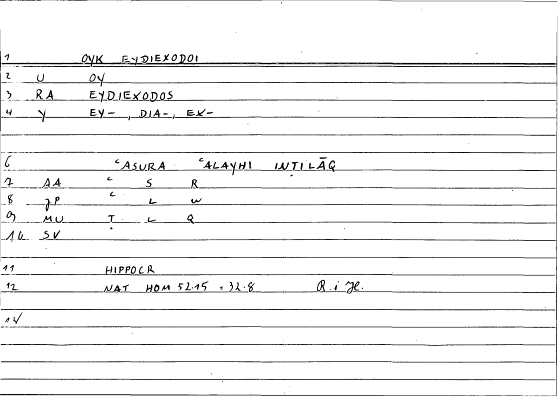 1 OYK EYDIEXODOI
2 U OY
3 RA EYDIEXODOS
4 Y EY- , DIA-, EX-
6 ʿASURA ʿALAYHI INṬILĀQ
7 AA ʿ S R
8 JP ʿ L W
9 MU Ṭ L Q
10 SV
11 HIPPOCR
12 NAT HOM 52.15 = 32.8 R. i H.
14